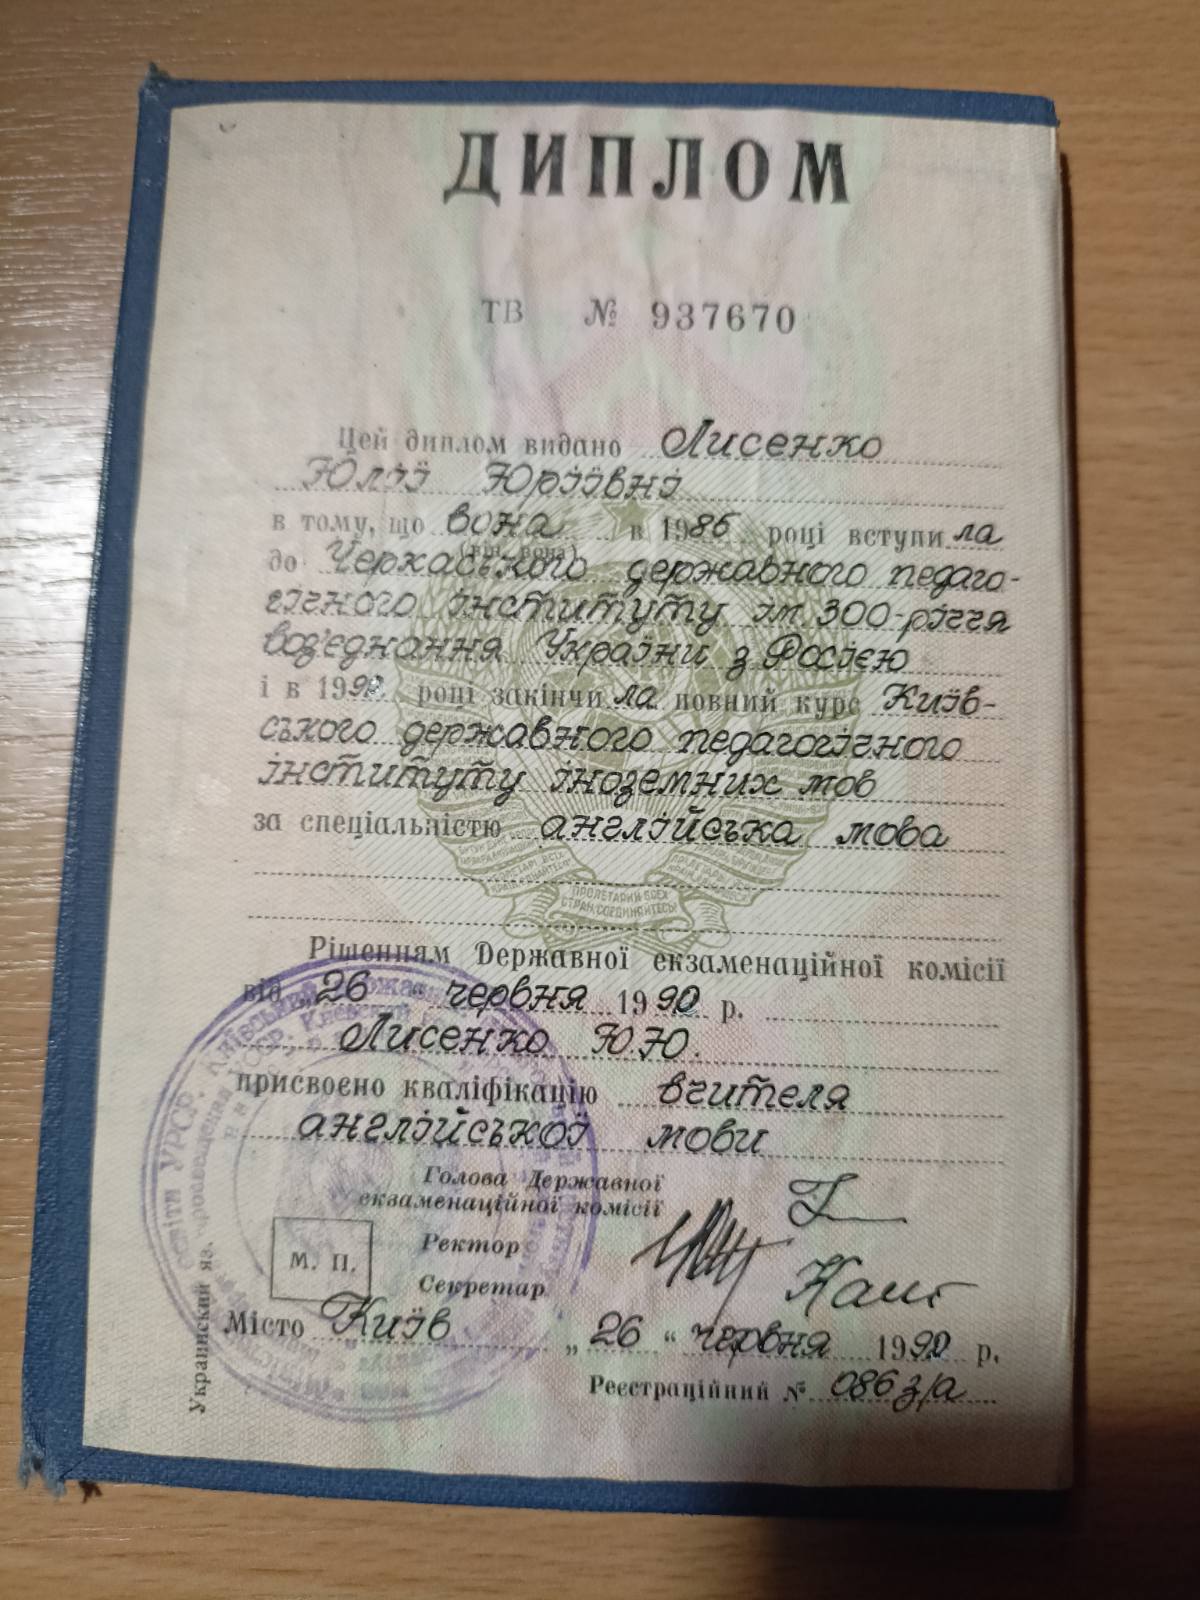 ДИПЛОМ
ТВ № 937670
Цей диплом видано Лисенко
Юлії Юріївні
в тому, що вона в 1985 році вступи ла
(він, вона)
до Черкаського державного педаго-
гічного інституту ім. 300-річчя
возз'єднання України з Росією
і в 1990 році закінчи ла повний курс Київ-
ського державного педагогічного
інституту іноземних мов
за спеціальністю англійська мова
ПРОЛЕТАРИИ ВСЕХ
СТРАН, СОЕДИНЯЙТЕСЬ!
Рішенням Державної екзаменаційної комісії
від „26“ червня 1990 р.
Лисенко Ю.Ю.
присвоєно кваліфікацію вчителя
англійської мови
Голова Державної
екзаменаційної комісії
Ректор
М. П.
Секретар
Місто Київ „26“ червня 1990 р.
Реєстраційний № 086 з/а
Украинский яз.